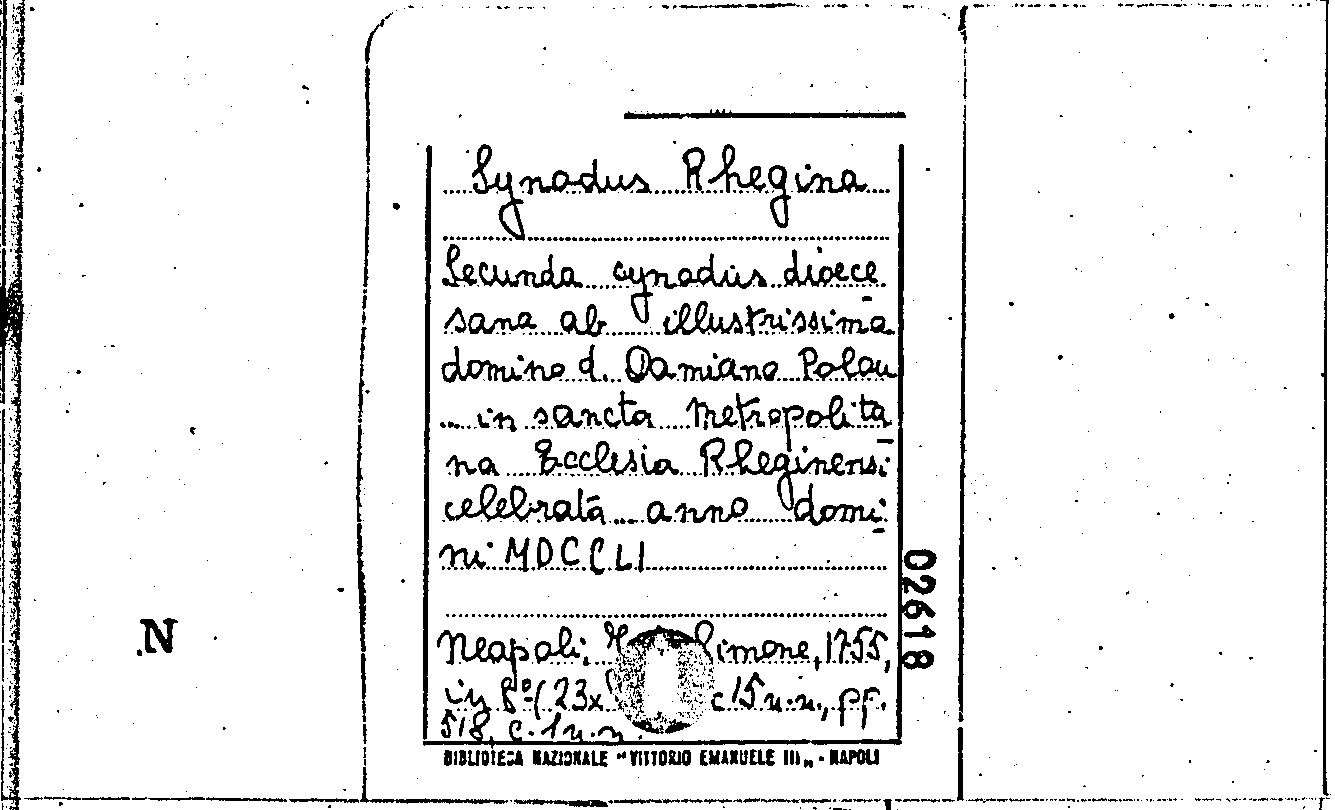 Synadus Rhegina
Secunda synadus dioece
sana ab illustrissima
domino d. Damiano Polou
... in sancta Metropolita
na Ecclesia Rheginensi
celebrata... anno domi
ni MDCCLI
Neapoli, Simone, 1755,
in 8º (23x c 15 n.n., pp.
518, c. 1 n.n.
BIBLIOTECA NAZIONALE "VITTORIO EMANUELE III„ - NAPOLI
02618
N